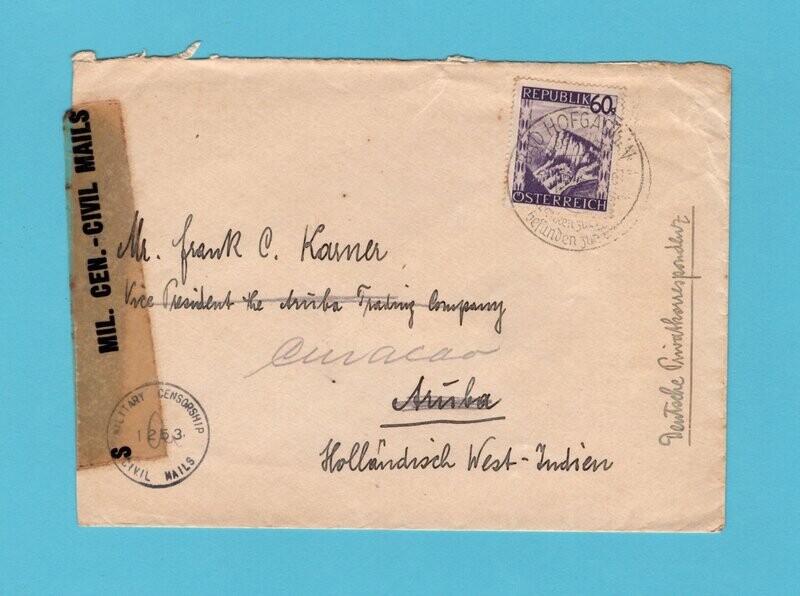 REPUBLIK 60g
ÖSTERREICH
HOFGASTEIN
befinden
MIL. CEN.-CIVIL MAILS
S
Mr. Frank C. Karner
Vice President the Aruba Trading Company
Curacao
Aruba
Holländisch West-Indien
Deutsche Privatkorrespondenz
MILITARY CENSORSHIP
1253
CIVIL MAILS